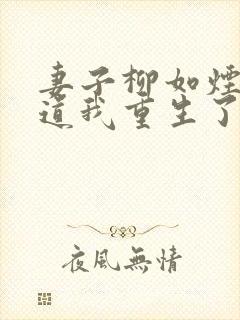 妻子柳如煙
道我重生了
夜風無情